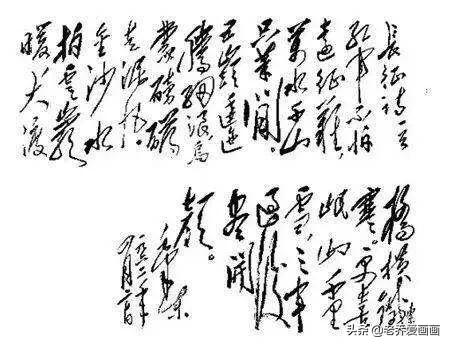 長征詩一首
红军不怕
遠征難，
萬水千山
只等闲。
五嶺逶迤
腾细浪，烏
蒙磅礴
走泥丸。
金沙水
拍雲巖
暖，大渡
橋横鐵索
寒。更喜
岷山千里
雪，三军
過後
盡開
顏。
毛澤東
一九六二年
头条 @老乔爱画画